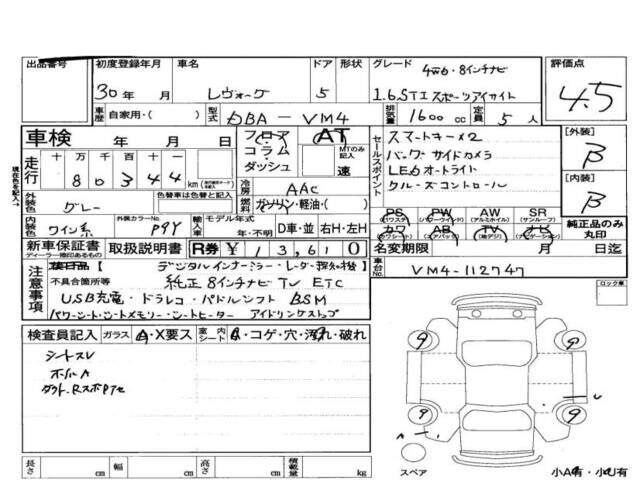 出品番号 初度登録年月 車名 ドア 形状 グレード 4WD・8インチナビ 評価点
30年 月 レヴォーグ 5 1.6STIスポーツアイサイト 4.5
車歴 自家用・( ) 型式 DBA-VM4 排気量 1600cc 定員 5人
車検 年 月 日 フロア コラム ダッシュ AT MTのみ記入 速
走行 十万千百十 8 0 3 4 4 km
セールスポイント
スマートキー×2
バックサイドカメラ
LEDオートライト
クルーズコントロール
[外装] B
[内装] B
外装色 グレー 色替車は色替前色 冷房 AAC 燃料 ガソリン・軽油・( )
内装色 ワイン系 外装カラーNo. P9Y 輸入車 モデル年式 年・不明 D車・並 右H・左H
PS (パワステ) PW (パワーウィンド) AW (アルミホイル) SR (サンルーフ)
カワ AB (エアバッグ) TV (地デジ) ナビ (ナビゲーション)
純正品のみ丸印
新車保証書 ディーラー捺印あるもの 取扱説明書 R券 ¥ 13,610 名変期限 月 日迄
車台No. VM4-112747
注意事項 不具合箇所等
デジタルインナーミラー・レーダー探知機
純正8インチナビ TV ETC
USB充電・ドラレコ・パドルシフト BSM
パワーシート・シートメモリー・シートヒーター アイドリングストップ
ロック車
検査員記入 ガラス A・X要ス 室内シート キ・コゲ・穴・汚れ・破れ
シートスレ
ホイルA
9 9 9 9
U
A
スペア
小A有・小U有
長さ cm 幅 cm 高さ cm 積載量 kg
現在色を記入